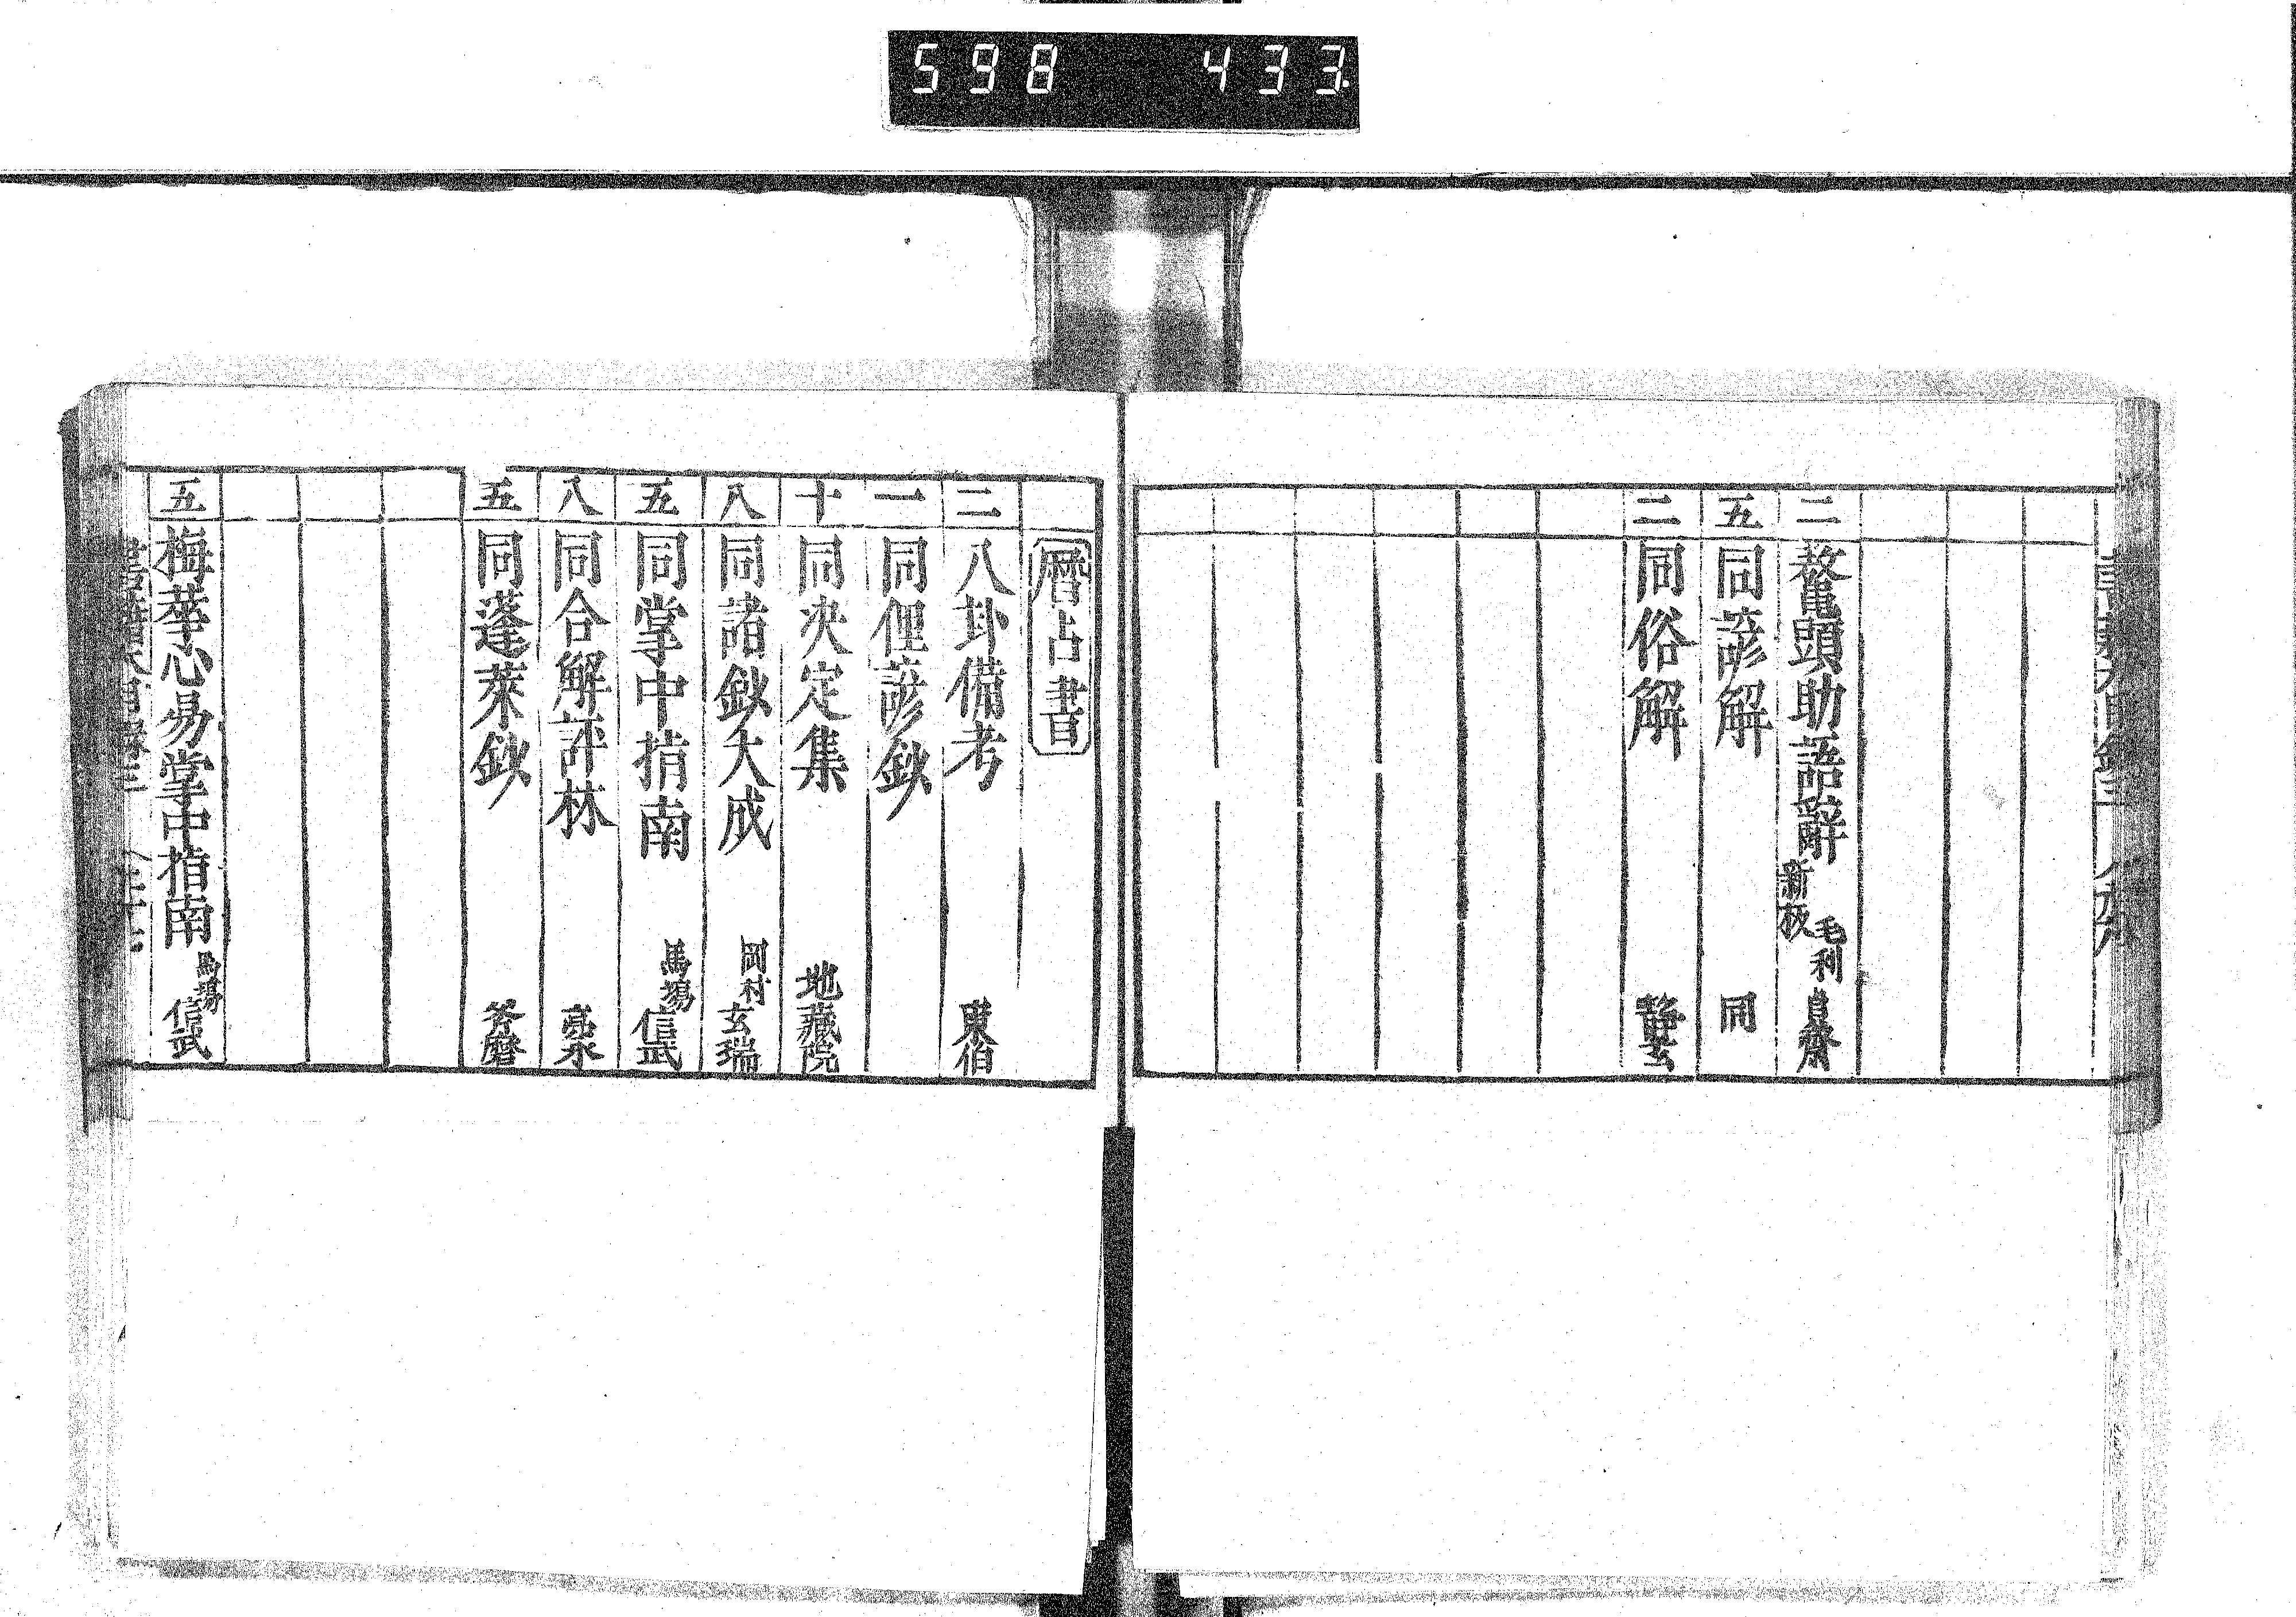 598 433
二 鼇頭助語辭 新板 毛利 貞齋
五 同諺解 同
二 同俗解 静玄
暦占書
二 八卦備考 東伯
一 同俚諺鈔
十 同决定集 地藏院
八 同諸鈔大成 岡村 玄瑞
五 同掌中指南 馬場 信武
八 同合解評林
五 同蓬萊鈔 斧磨
五 梅華心易掌中指南 馬場 信武